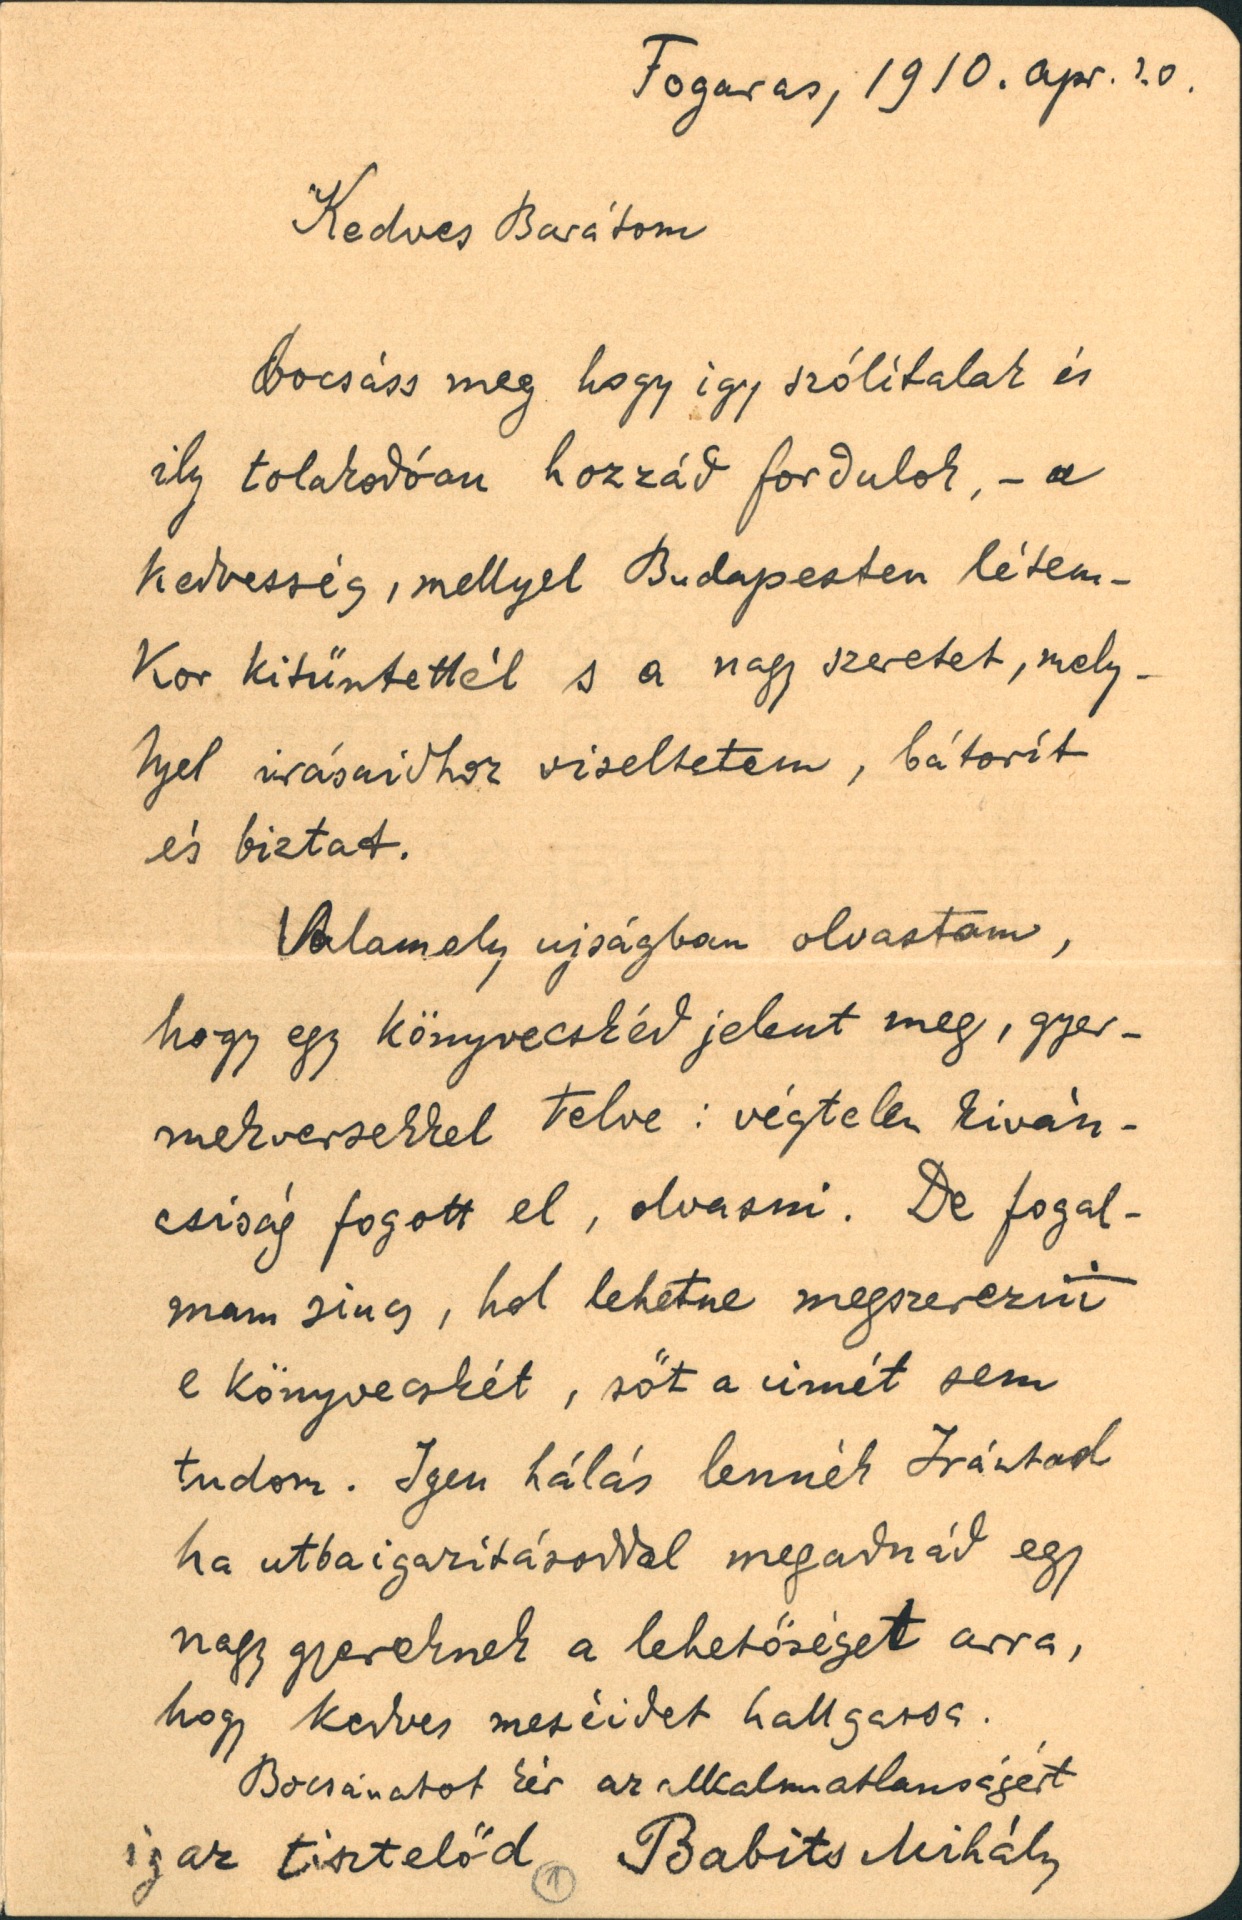 Fogaras, 1910. apr. 20.
Kedves Barátom
bocsáss meg hogy igy szólítalak és
ily tolakodóan hozzád fordulok, - a
kedvesség, mellyel Budapesten létem-
kor kitüntettél s a nagy szeretet, mely-
lyel irásaidhoz viseltetem, bátorít
és biztat.
Valamely ujságban olvastam,
hogy egy könyvecskéd jelent meg, gyer-
mekversekkel telve: végtelen kiván-
csiság fogott el, olvasni. De fogal-
mam sincs, hol lehetne megszerezni
e könyvecskét, sőt a cimét sem
tudom. Igen hálás lennék Irántad
ha utbaigazításoddal megadnád egy
nagy gyereknek a lehetőséget arra,
hogy kedves meséidet hallgassa.
Bocsánatot kér az alkalmatlanságért
igaz tisztelőd Babits Mihály
1